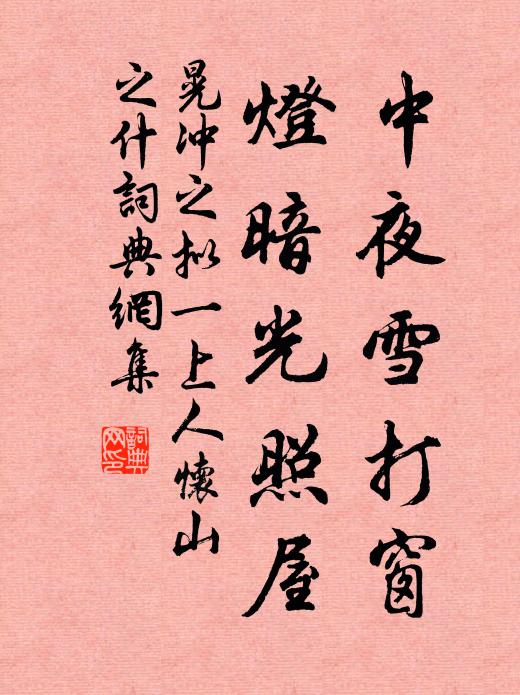 中夜雪打窗
燈暗光照屋
晁沖之拟一上人懷山
之什詞典網集
詞典网印